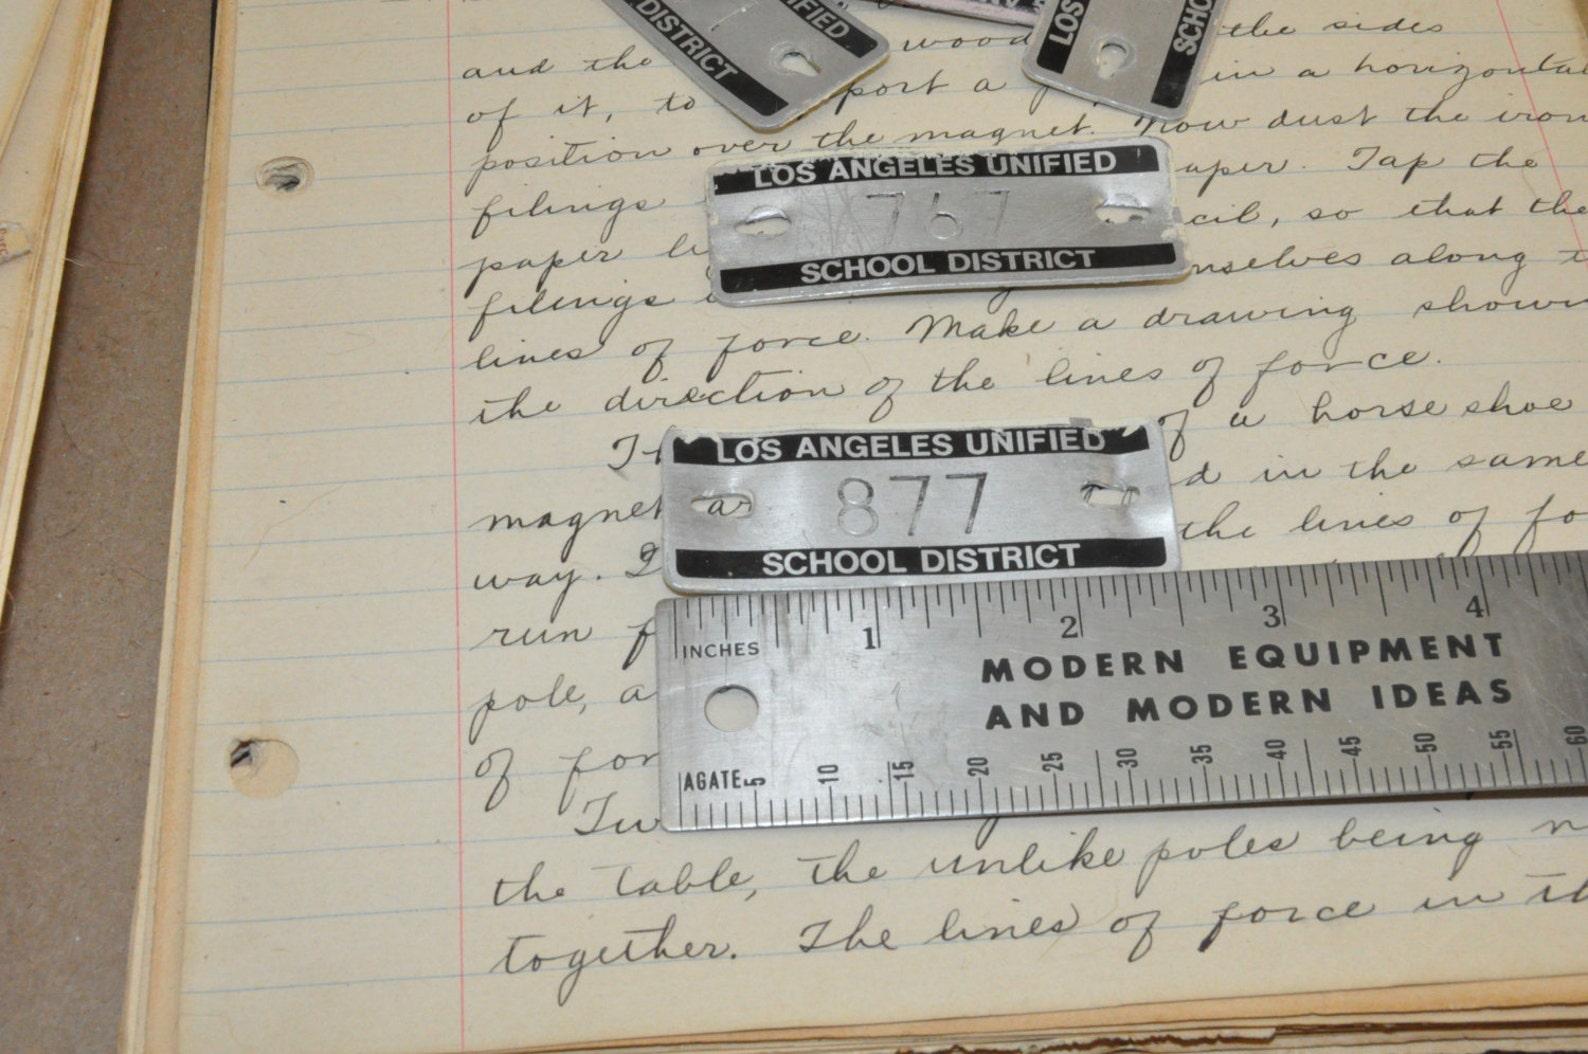 DISTRICT
IFIED
LOS
SCHO
wood the sides
and the
of it, to port a in a horizontal
position over the magnet. Now dust the iron
LOS ANGELES UNIFIED
767
SCHOOL DISTRICT
filings aper. Tap the
paper cil, so that the
filings nselves along
lines of force. Make a drawing show
the direction of the lines of force.
LOS ANGELES UNIFIED
877
SCHOOL DISTRICT
of a horse shoe
magnet a d in the same
way. the lines of fo
run f
pole, a
of for
INCHES 1 2 3 4
MODERN EQUIPMENT
AND MODERN IDEAS
AGATE 5 10 15 20 25 30 35 40 45 50 55 60
Tw
the table, the unlike poles being n
together. The lines of force in th